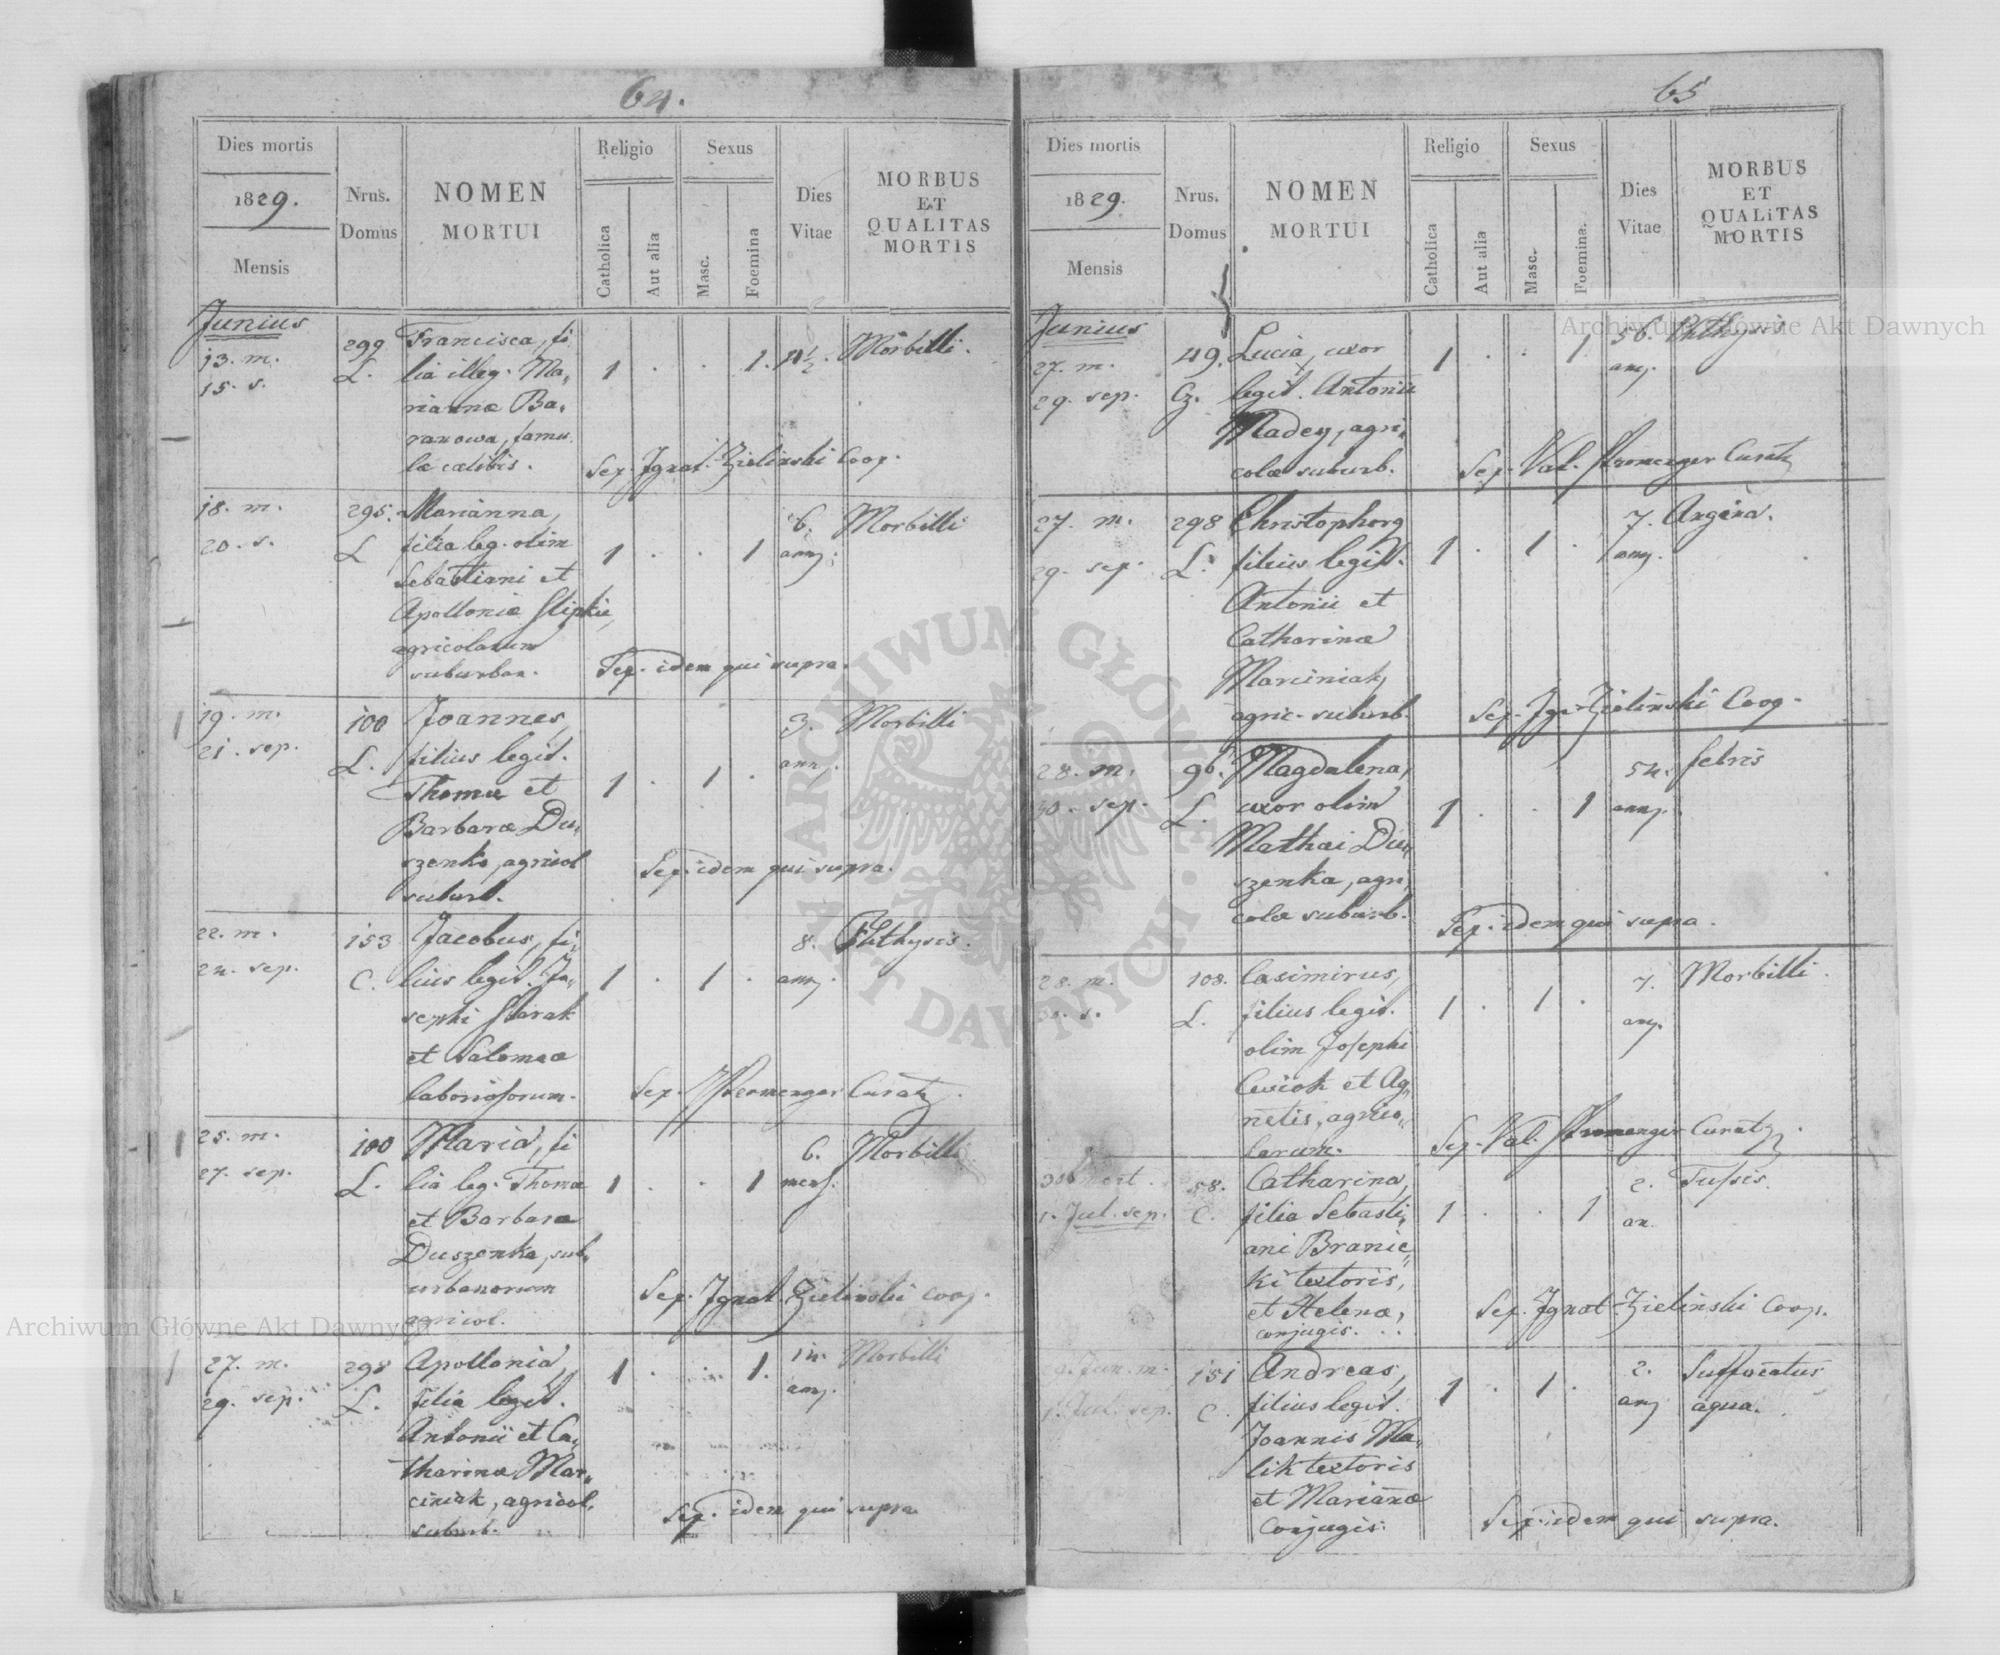 64.
Dies mortis
1829.
Mensis
Nrus.
Domus
NOMEN
MORTUI
Religio
Catholica
Aut alia
Sexus
Masc.
Foemina
Dies
Vitae
MORBUS
ET
QUALITAS
MORTIS
Junius
13. m.
15. s.
299
L.
Francisca, fi
lia illeg. Ma,,
riannæ Ba,,
ranowa, famu
læ cælibis.
1 . . 1.
Morbilli.
Sep. Ignat. Zielinski Coop.
18. m.
20. s.
295.
L
Marianna,
filia leg. olim
Sebastiani et
Apolloniæ
agricolarum
suburban.
1 . . 1
6.
ann.
Morbilli
Sep. idem qui supra.
19. m.
21. sep.
100
L.
Joannes,
filius legit.
Thomæ et
Barbaræ Du,,
szenko, agricol
suburb.
1 . 1 .
3.
ann.
Morbilli
Sep. idem qui supra.
22. m.
24. sep.
153
C.
Jacobus, fi,,
lius legit. Jo,,
sephi
et Salomeæ
laboriosorum.
1 . 1 .
8.
ann.
Phthysis.
Sep. Curat
25. m.
27. sep.
100
L.
Maria, fi
lia leg. Thomæ
et Barbaræ
Duszenko, sub,,
urbanorum
agricol.
1 . . 1
6.
mens.
Morbilli
Sep. Ignat. Zielinski coop.
27. m.
29. sep.
298
L.
Apollonia,
filia legit.
Antonii et Ca,,
tharinæ Mar,,
ciniak, agricol.
suburb.
1 . . 1.
14.
ann.
Morbilli
Sep. idem qui supra
65
Dies mortis
1829.
Mensis
Nrus.
Domus
NOMEN
MORTUI
Religio
Catholica
Aut alia
Sexus
Masc.
Foemina.
Dies
Vitae
MORBUS
ET
QUALiTAS
MORTIS
Junius
27. m.
29. sep.
49.
Cz.
Lucia, uxor
legit. Antonii
Madey, agri,,
colæ suburb.
1 . . 1
56.
ann.
Phthysis
Sep. Val. Curat
27. m.
29. sep.
298
L.
Christophorg
filius legit.
Antonii et
Catharinæ
Marciniak,
agric. suburb.
1 . 1 .
7.
ann.
Angina.
Sep. Ign. Zielinski Coop.
28. m.
30. sep.
96.
L.
Magdalena,
uxor olim
Mathæi Du,,
szenka, agri,,
colæ suburb.
1 . . 1
54.
ann.
febris
Sep. idem qui supra.
28. m.
30. s.
108.
L.
Casimirus,
filius legit.
olim Josephi
et Ag,,
netis, agrico,,
larum.
1 . 1 .
7.
ann.
Morbilli.
Sep. Val. Curat
mort.
1. Jul. sep.
58.
C.
Catharina,
filia Sebasti,,
ani Branic,,
ki textoris,
et Helenæ,
conjugis.
1 . . 1
2.
an.
Tussis.
Sep. Ignat. Zielinski Coop.
Jun. m.
1. Jul. sep.
151
C
Andreas,
filius legit.
Joannis Ma,,
lik textoris
et Marianæ
conjugis.
1 . 1 .
2.
ann
Suffocatus
aqua.
Sep. idem qui supra.
Archiwum Główne Akt Dawnych
Archiwum Główne Akt Dawnych
ARCHIWUM GŁÓWNE AKT DAWNYCH